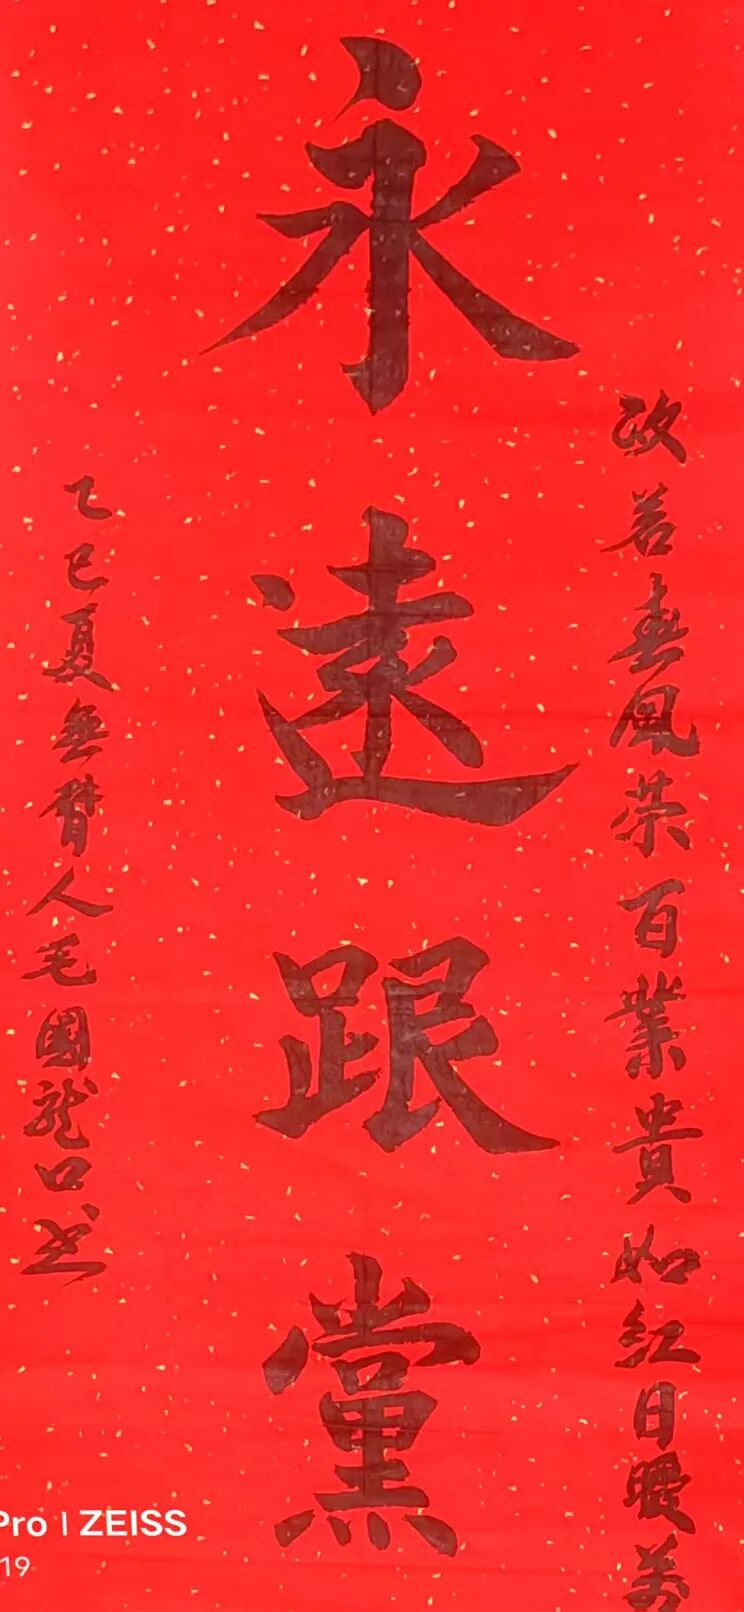 政若春風荣百業貴如紅日暖萬
永遠跟黨
乙巳夏無臂人毛國龍口书
Pro | ZEISS
19